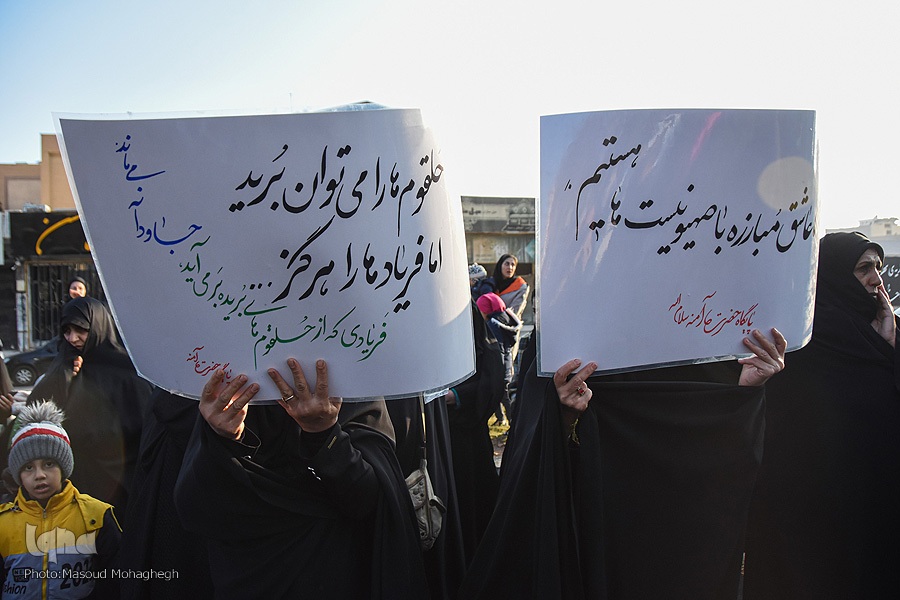 حلقوم ها را می توان بُرید
اما فریاد ها را هرگز
فَریادی که از حُلقوم های بُریده بَر می آید،
جاودانه
می ماند
پایگاه حضرت آمنه
عاشق مُبارزه با صهیونیست ها
هستیم
پایگاه حضرت آمنه سلام الله
iqna
Photo:Masoud Mohaghegh
202